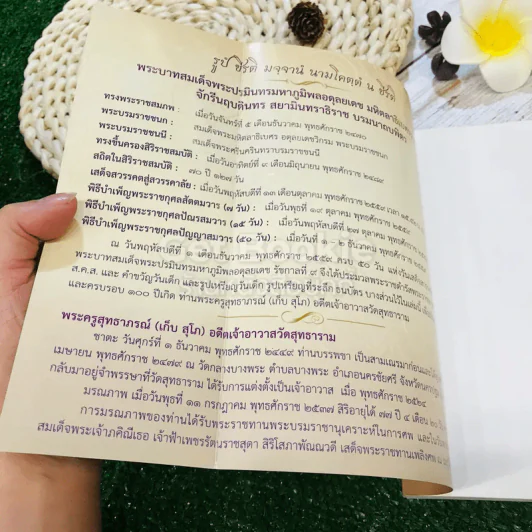 รูปํ ชีรติ มจฺจานํ นามโคตฺตํ น ชีรติ
พระบาทสมเด็จพระปรมินทรมหาภูมิพลอดุลยเดช มหิตลาธิเบศร
จักรีนฤบดินทร สยามินทราธิราช บรมนาถบพิตร
ทรงพระราชสมภพ : เมื่อวันจันทร์ที่ ๕ เดือนธันวาคม พุทธศักราช ๒๔๗๐
พระบรมราชชนก : สมเด็จพระมหิตลาธิเบศร อดุลยเดชวิกรม พระบรมราชชนก
พระบรมราชชนนี : สมเด็จพระศรีนครินทราบรมราชชนนี
ทรงขึ้นครองสิริราชสมบัติ : เมื่อวันอาทิตย์ที่ ๙ เดือนมิถุนายน พุทธศักราช ๒๔๘๙
สถิตในสิริราชสมบัติ : ๗๐ ปี ๑๒๗ วัน
เสด็จสวรรคตสู่สวรรคาลัย : เมื่อวันพฤหัสบดีที่ ๑๓ เดือนตุลาคม พุทธศักราช ๒๕๕๙ เวลา
พิธีบำเพ็ญพระราชกุศลสัตตมวาร (๗ วัน) : เมื่อวันพุธที่ ๑๙ ตุลาคม พุทธศักราช ๒๕๕๙
พิธีบำเพ็ญพระราชกุศลปัณรสมวาร (๑๕ วัน) : เมื่อวันพฤหัสบดีที่ ๒๗ ตุลาคม พุทธศักราช
พิธีบำเพ็ญพระราชกุศลปัญญาสมวาร (๕๐ วัน) : เมื่อวันที่ ๑ ธันวาคม พุทธศักราช ๒๕๕๙
ณ วันพฤหัสบดีที่ ๑ เดือนธันวาคม พุทธศักราช ๒๕๕๙ ครบ ๕๐ วัน แห่งวันเสด็จ
พระบาทสมเด็จพระปรมินทรมหาภูมิพลอดุลยเดช รัชกาลที่ ๙ จึงได้ประมวลพระราชดำรัสพร
ส.ค.ส. และ คำขวัญวันเด็ก และรูปเหรียญวันเด็ก รูปเหรียญที่ระลึก ธนบัตร บางส่วนไว้ในเล่มนี้
และครบรอบ ๑๐๐ ปีเกิด ท่านพระครูสุทธาภรณ์ (เก็บ สุโภ) อดีตเจ้าอาวาสวัดสุทธาราม
พระครูสุทธาภรณ์ (เก็บ สุโภ) อดีตเจ้าอาวาสวัดสุทธาราม
ชาตะ วันศุกร์ที่ ๑ ธันวาคม พุทธศักราช ๒๔๔๙ ท่านบรรพชา เป็นสามเณรมาก่อนและ
เมษายน พุทธศักราช ๒๔๗๙ ณ วัดกลางบางพระ ตำบลบางพระ อำเภอนครชัยศรี จังหวัดนครปฐม
กลับมาอยู่จำพรรษาที่วัดสุทธาราม ได้รับการแต่งตั้งเป็นเจ้าอาวาส เมื่อ พุทธศักราช ๒๕๒๔
มรณภาพ เมื่อวันพุธที่ ๑๑ กรกฎาคม พุทธศักราช ๒๕๓๗ สิริอายุได้ ๗๗ ปี ๔ เดือน ๒๐ วัน
การมรณภาพของท่านได้รับพระราชทานพระบรมราชานุเคราะห์ในการศพ และใน
สมเด็จพระเจ้าภคินีเธอ เจ้าฟ้าเพชรรัตนราชสุดา สิริโสภาพัณณวดี เสด็จพระราชทานเพลิงศพ ณ